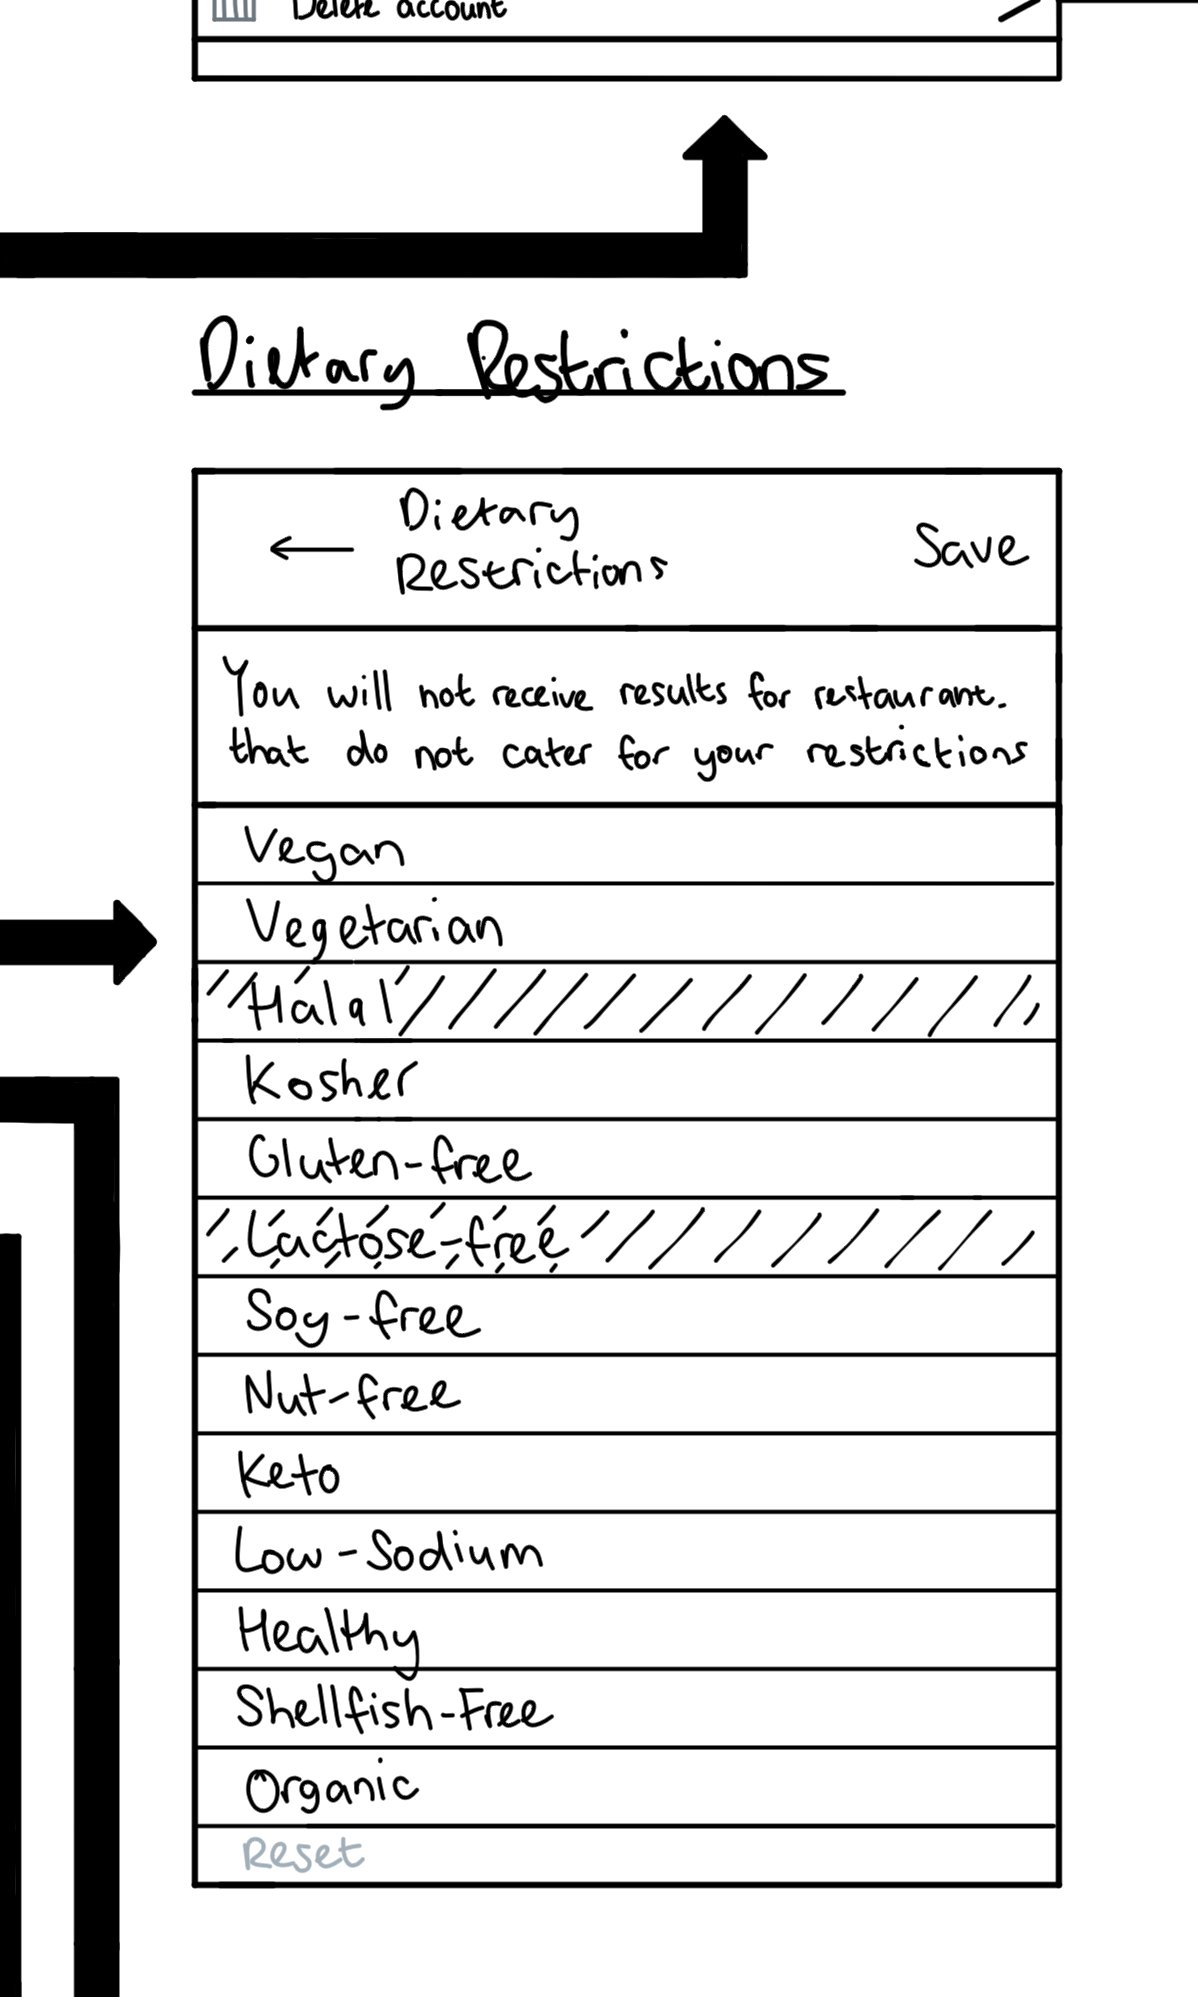 Delete account
Dietary Restrictions
Dietary
Restrictions
Save
You will not receive results for restaurant.
that do not cater for your restrictions
Vegan
Vegetarian
Halal
Kosher
Gluten-free
Lactose-free
Soy-free
Nut-free
Keto
Low-Sodium
Healthy
Shellfish-Free
Organic
Reset